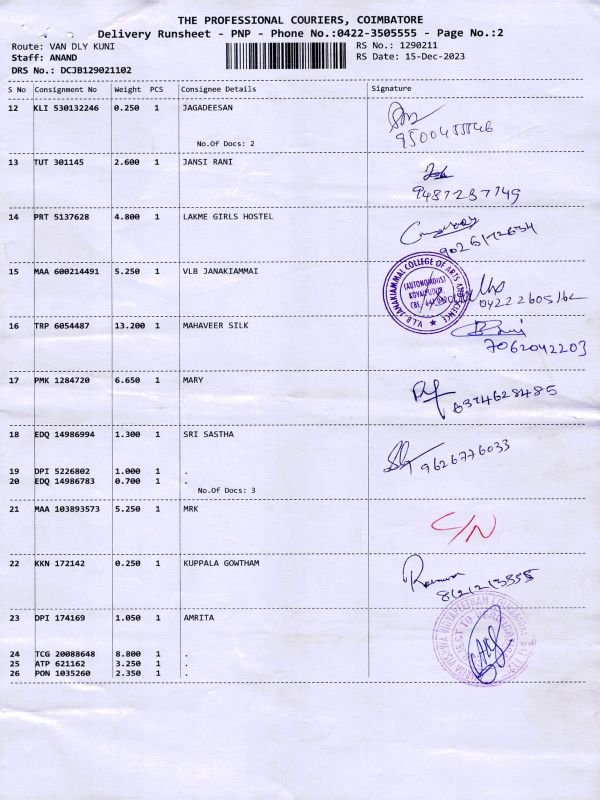 THE PROFESSIONAL COURIERS, COIMBATORE
Delivery Runsheet - PNP - Phone No.:0422-3505555 - Page No.:2
Route: VAN DLY KUNI RS No.: 1290211
Staff: ANAND RS Date: 15-Dec-2023
DRS No.: DCJB129021102
S No Consignment No Weight PCS Consignee Details Signature
12 KLI 530132246 0.250 1 JAGADEESAN
No.Of Docs: 2
13 TUT 301145 2.600 1 JANSI RANI
9487237749
14 PRT 5137628 4.800 1 LAKME GIRLS HOSTEL
15 MAA 600214491 5.250 1 VLB JANAKIAMMAI
V.L.B. JANAKIAMMAL COLLEGE OF ARTS AND SCIENCE
(AUTONOMOUS)
16 TRP 6054487 13.200 1 MAHAVEER SILK
7062042203
17 PMK 1284720 6.650 1 MARY
6374628485
18 EDQ 14986994 1.300 1 SRI SASTHA
9626776033
19 DPI 5226802 1.000 1 .
20 EDQ 14986783 0.700 1 .
No.Of Docs: 3
21 MAA 103893573 5.250 1 MRK
C/N
22 KKN 172142 0.250 1 KUPPALA GOWTHAM
23 DPI 174169 1.050 1 AMRITA
24 TCG 20088648 8.800 1 .
25 ATP 621162 3.250 1 .
26 PON 1035260 2.350 1 .